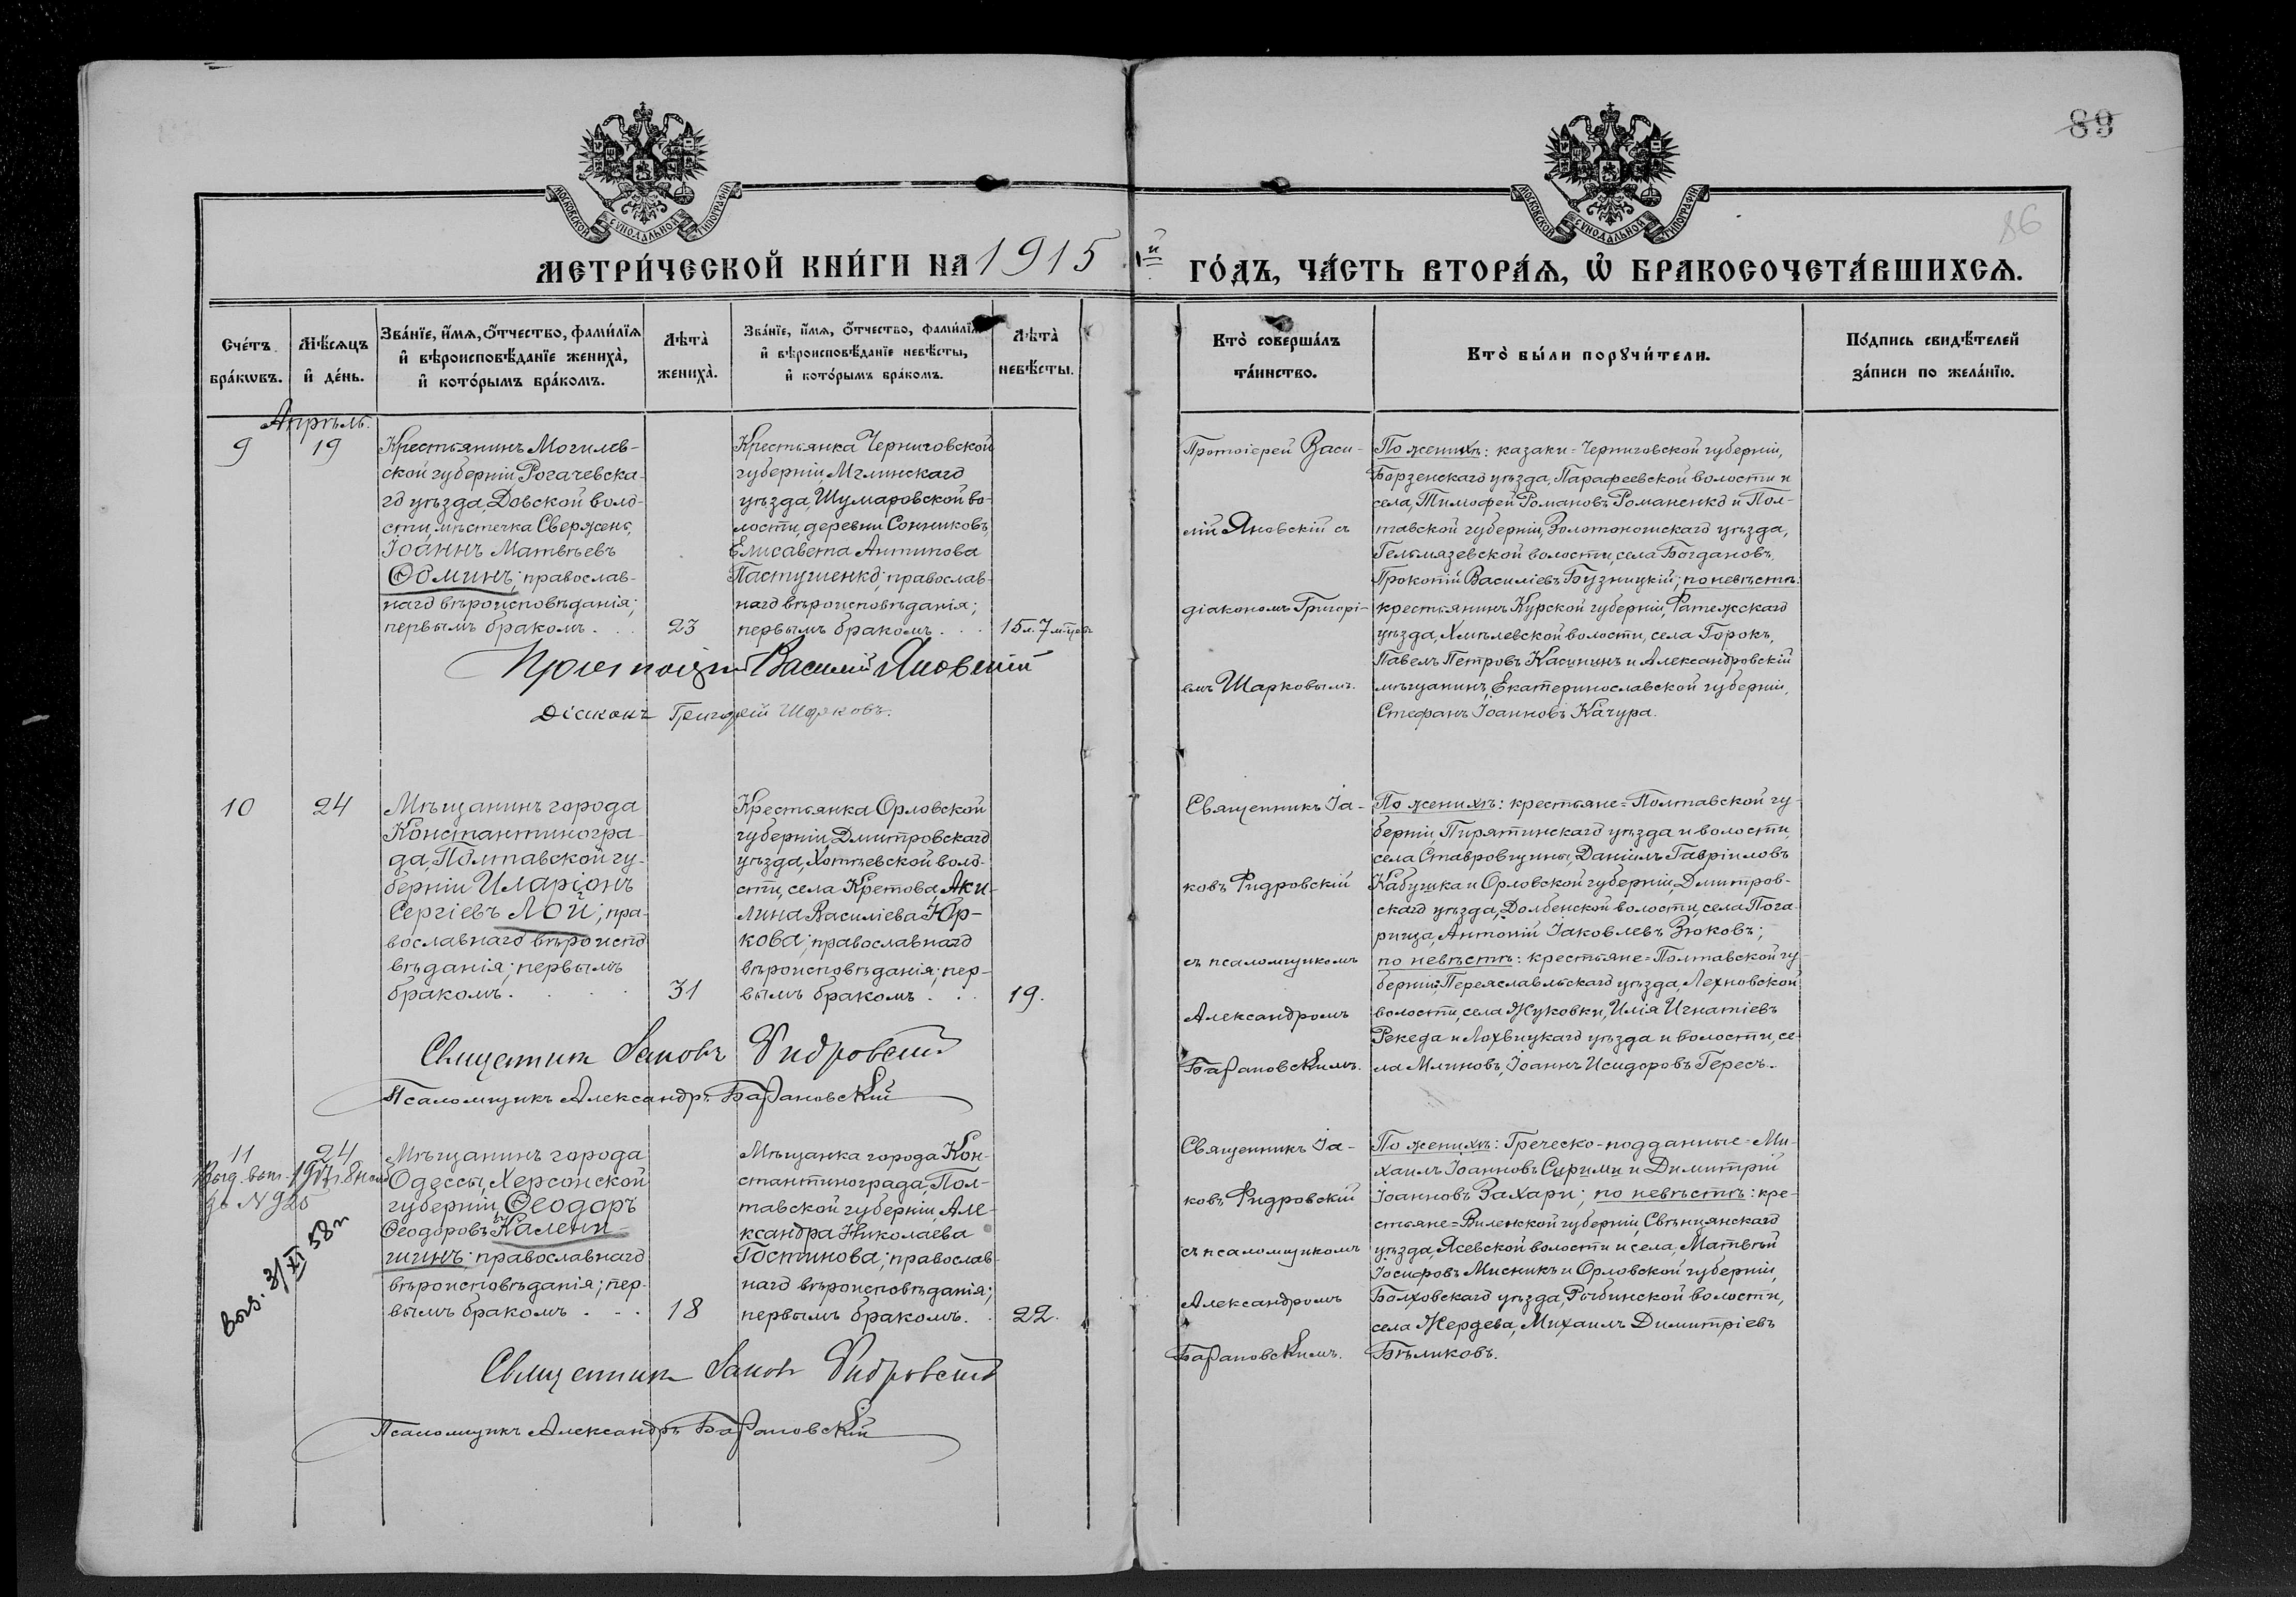 89
86
МОСКОВСКОЙ СѴНОДАЛЬНОЙ ТИПОГРАФІИ
МОСКОВСКОЙ СѴНОДАЛЬНОЙ ТИПОГРАФІИ
МЕТРИ́ЧЕСКОЙ КНИ́ГИ НА 1915й ГО́ДЪ, ЧА́СТЬ ВТОРА́Ѧ, Ѽ БРАКОСОЧЕТА́ВШИХСѦ.
Сче́тъ
бра́кѡвъ.
Мѣ́сѧцъ
и҆ де́нь.
Зва́нїе, и҆́мѧ, ѻ҆́тчество, фами́лїѧ
и҆ вѣроисповѣ́данїе жениха̀,
и҆ кото́рымъ бра́комъ.
Лѣ́та̀
жениха̀.
Зва́нїе, и҆́мѧ, ѻ҆́тчество, фами́лїѧ
и҆ вѣроисповѣ́данїе невѣ́сты,
и҆ кото́рымъ бра́комъ.
Лѣ́та̀
невѣ́сты.
Кто̀ соверша́лъ
та́инство.
Кто̀ бы́ли порꙋчи́тели.
По́дпись свидѣ́телей
за́писи по жела́нїю.
Апрѣль.
9
19
Крестьянинъ Могилев-
ской губерніи, Рогачевска-
го уѣзда, Довской воло-
сти, мѣстечка Свержень,
Іоаннъ Матвѣевъ
Ѳоминъ; православ-
наго вѣроисповѣданія;
первымъ бракомъ . . .
23
Крестьянка Черниговской
губерніи, Мглинскаго
уѣзда, Шумаровской во-
лости, деревни Сонниковъ,
Елисавета Антипова
Пастушенко; православ-
наго вѣроисповѣданія;
первымъ бракомъ . . .
15 л. 7 м-цев
Протоіерей Васи-
лій Яновскій съ
діакономъ Григорі-
емъ Шарковымъ.
По женихѣ: казаки = Черниговской губерніи,
Борзенскаго уѣзда, Парафеевской волости и
села, Тимофей Романовъ Романенко и Пол-
тавской губерніи, Золотоношскаго уѣзда,
Гельмязевской волости, села Богдановъ,
Прокопій Василіевъ Бузницкій; по невѣстѣ:
крестьянинъ Курской губерніи, Фатежскаго
уѣзда, Хмѣлевской волости, села Горокъ,
Павелъ Петровъ Касининъ и Александровскій
мѣщанинъ, Екатеринославской губерніи,
Стефанъ Іоанновъ Качура.
Протоіерей Василій Яновскій
Діаконъ Григорій Шарковъ.
10
24
Мѣщанинъ города
Константиногра-
да, Полтавской гу-
берніи Иларіонъ
Сергіевъ Лой; пра-
вославнаго вѣроиспо
вѣданія; первымъ
бракомъ. . . .
31
Крестьянка Орловской
губерніи, Дмитровскаго
уѣзда, Хотѣевской воло-
сти, села Кретова, Аки-
лина Василіева Юр-
кова; православнаго
вѣроисповѣданія; пер-
вымъ бракомъ . . .
19.
Священникъ Іа-
ковъ Фидровскій
съ псаломщикомъ
Александромъ
Барановскимъ.
По женихѣ: крестьяне = Полтавской гу-
берніи, Пирятинскаго уѣзда и волости,
села Ставровщины, Даніилъ Гавріиловъ
Кабушка и Орловской губерніи, Дмитров-
скаго уѣзда, Долбенской волости, села Пога-
рища, Антоній Іаковлевъ Зюковъ;
по невѣстѣ: крестьяне = Полтавской гу-
берніи: Переяславльскаго уѣзда, Лехновской
волости, села Жуковки, Илія Игнатіевъ
Рекеда и Лохвицкаго уѣзда и волости, се-
ла Млиновъ, Іоаннъ Исидоровъ Гересъ.
Священникъ Іаковъ Фидровскій
Псаломщикъ Александръ Барановскій
11
24
Выд. вып.
за N 925
выв. 3/XI 58 г
Мѣщанинъ города
Одессы, Херсонской
губерніи, Ѳеодоръ
Ѳеодоровъ Калени-
шинъ; православнаго
вѣроисповѣданія; пер-
вымъ бракомъ . . .
18
Мѣщанка города Кон-
стантинограда, Пол-
тавской губерніи, Але-
ксандра Николаева
Гостинова; православ-
наго вѣроисповѣданія;
первымъ бракомъ. .
22.
Священникъ Іа-
ковъ Фидровскій
съ псаломщикомъ
Александромъ
Барановскимъ.
По женихѣ: Греческо-подданные = Ми-
хаилъ Іоанновъ Сирими и Димитрій
Іоанновъ Захари; по невѣстѣ: кре-
стьяне = Виленской губерніи, Свѣнцянскаго
уѣзда, Ясевской волости и села, Матвѣй
Іосифовъ Мисникъ и Орловской губерніи,
Болховскаго уѣзда, Рыбинской волости,
села Жердева, Михаилъ Димитріевъ
Бѣликовъ.
Священникъ Іаковъ Фидровскій
Псаломщикъ Александръ Барановскій